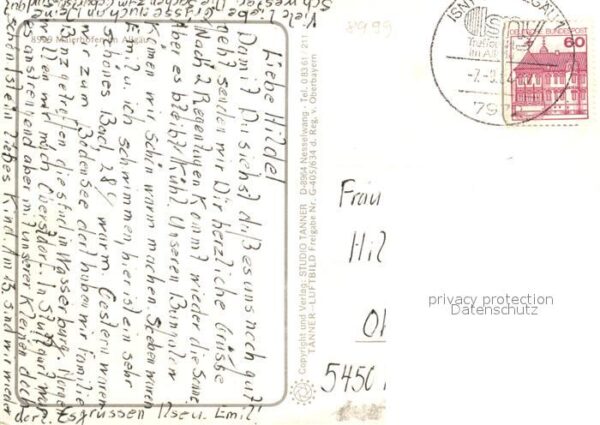 8999 Maierhöfen im Allgäu
Liebe Hilde!
Damit Du siehst daß es uns noch gut
geht senden wir Dir herzliche Grüsse
Nach 2 Regentagen kommt wieder die Sonne
Aber es bleibt kühl. Unseren Bummler
können wir schön warm machen. Soeben waren
Emil u. ich schwimmen, hier ist ein sehr
schönes Bad 28° warm. Gestern waren
wir zum Bodensee dort haben wir Familie
getroffen die sind in Wasserburg. Morgen
wollen wir nach Oberstdorf. In Stuttgart war
es anstrengend aber mit unserer Kleinen doch
schön ist ein liebes Kind. Am 13. sind wir wieder
dort. Es grüssen Ilse u. Emil!
Viele liebe Grüsse auch an Deine
Schwester
Copyright und Verlag: STUDIO TANNER D-8964 Nesselwang - Tel. 0 83 61 / 211
TANNER-LUFTBILD Freigabe Nr. G-405/634 d. Reg. v. Oberbayern
8999
ISNY
797
DEUTSCHE BUNDESPOST
60
Frau
Hil
5450
privacy protection
Datenschutz